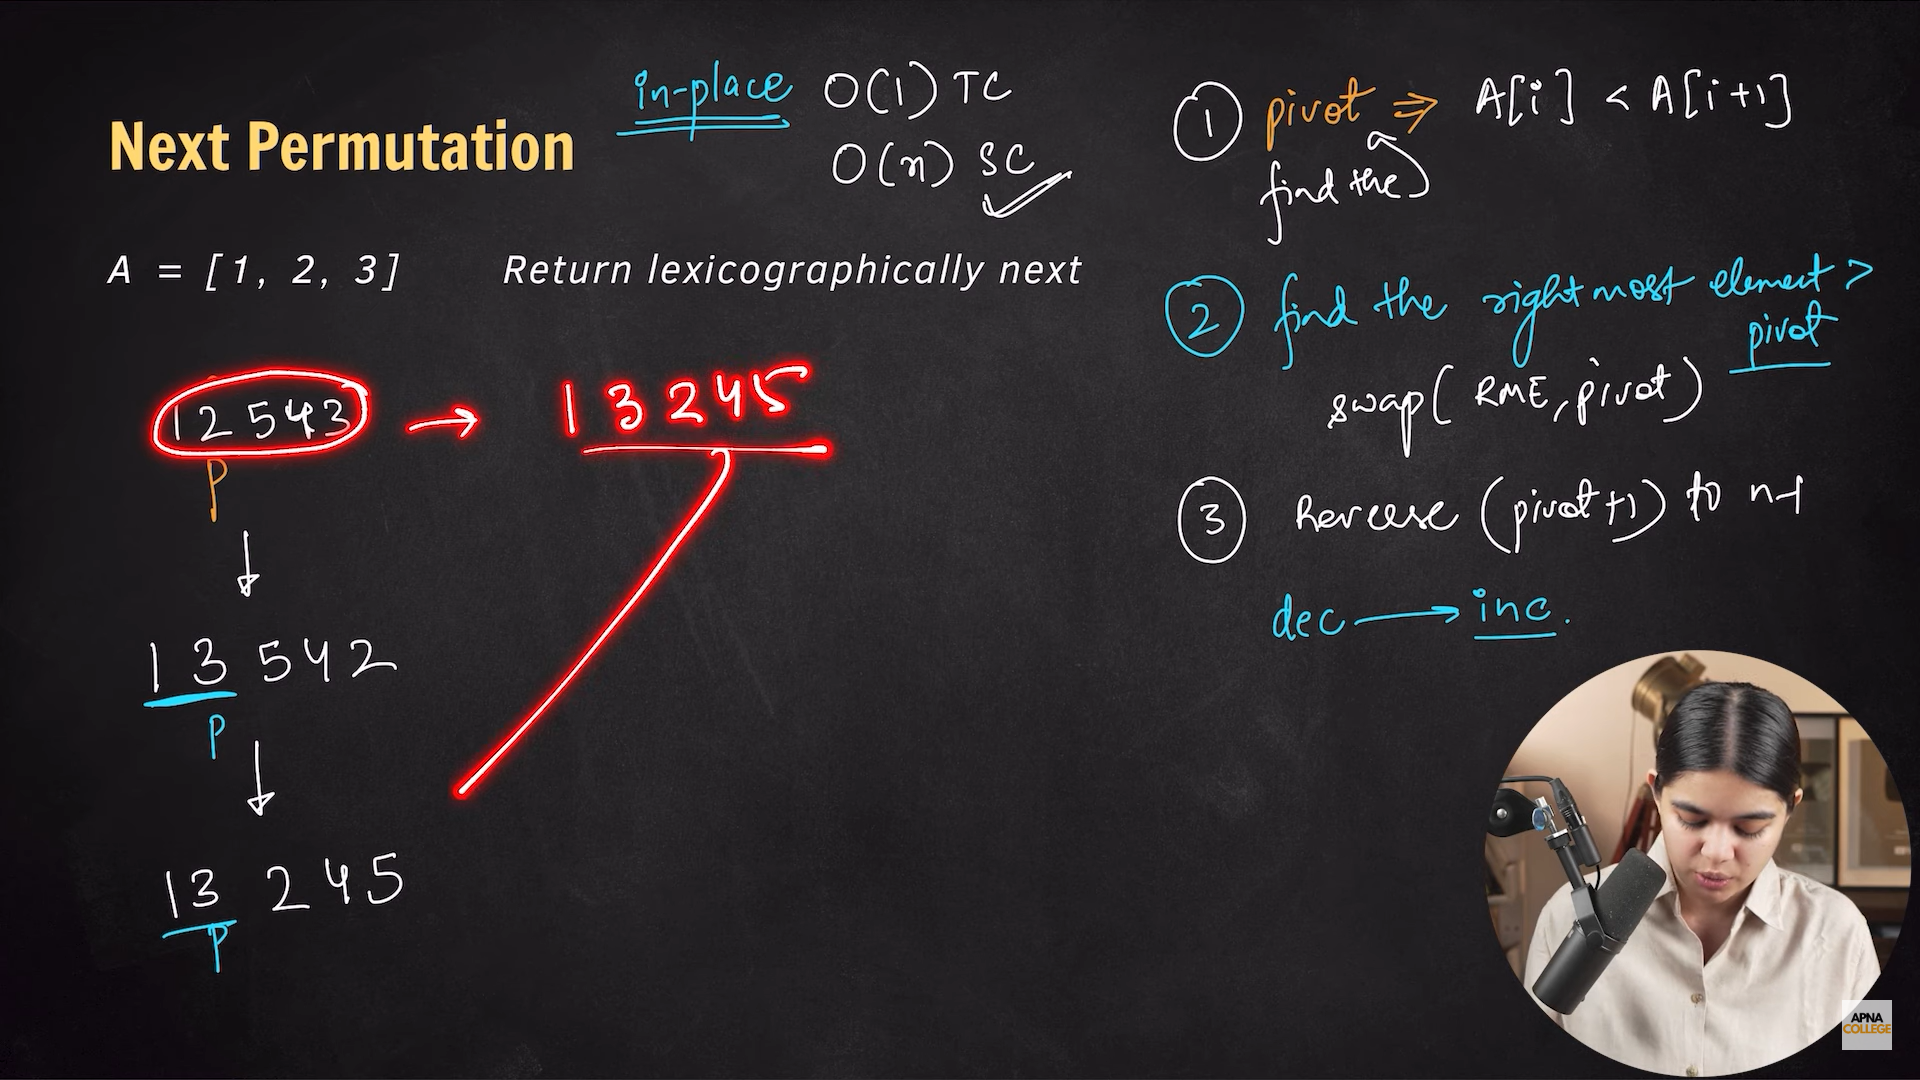 Next Permutation
in-place O(1) TC
O(n) SC
A = [1, 2, 3] Return lexicographically next
1 2 5 4 3 → 1 3 2 4 5
P
↓
1 3 5 4 2
P
↓
1 3 2 4 5
P
1 pivot ⇒ A[i] < A[i+1]
find the
2 find the right most element >
pivot
swap( RME, pivot)
3 Reverse (pivot+1) to n-1
dec → inc.
APNA
COLLEGE